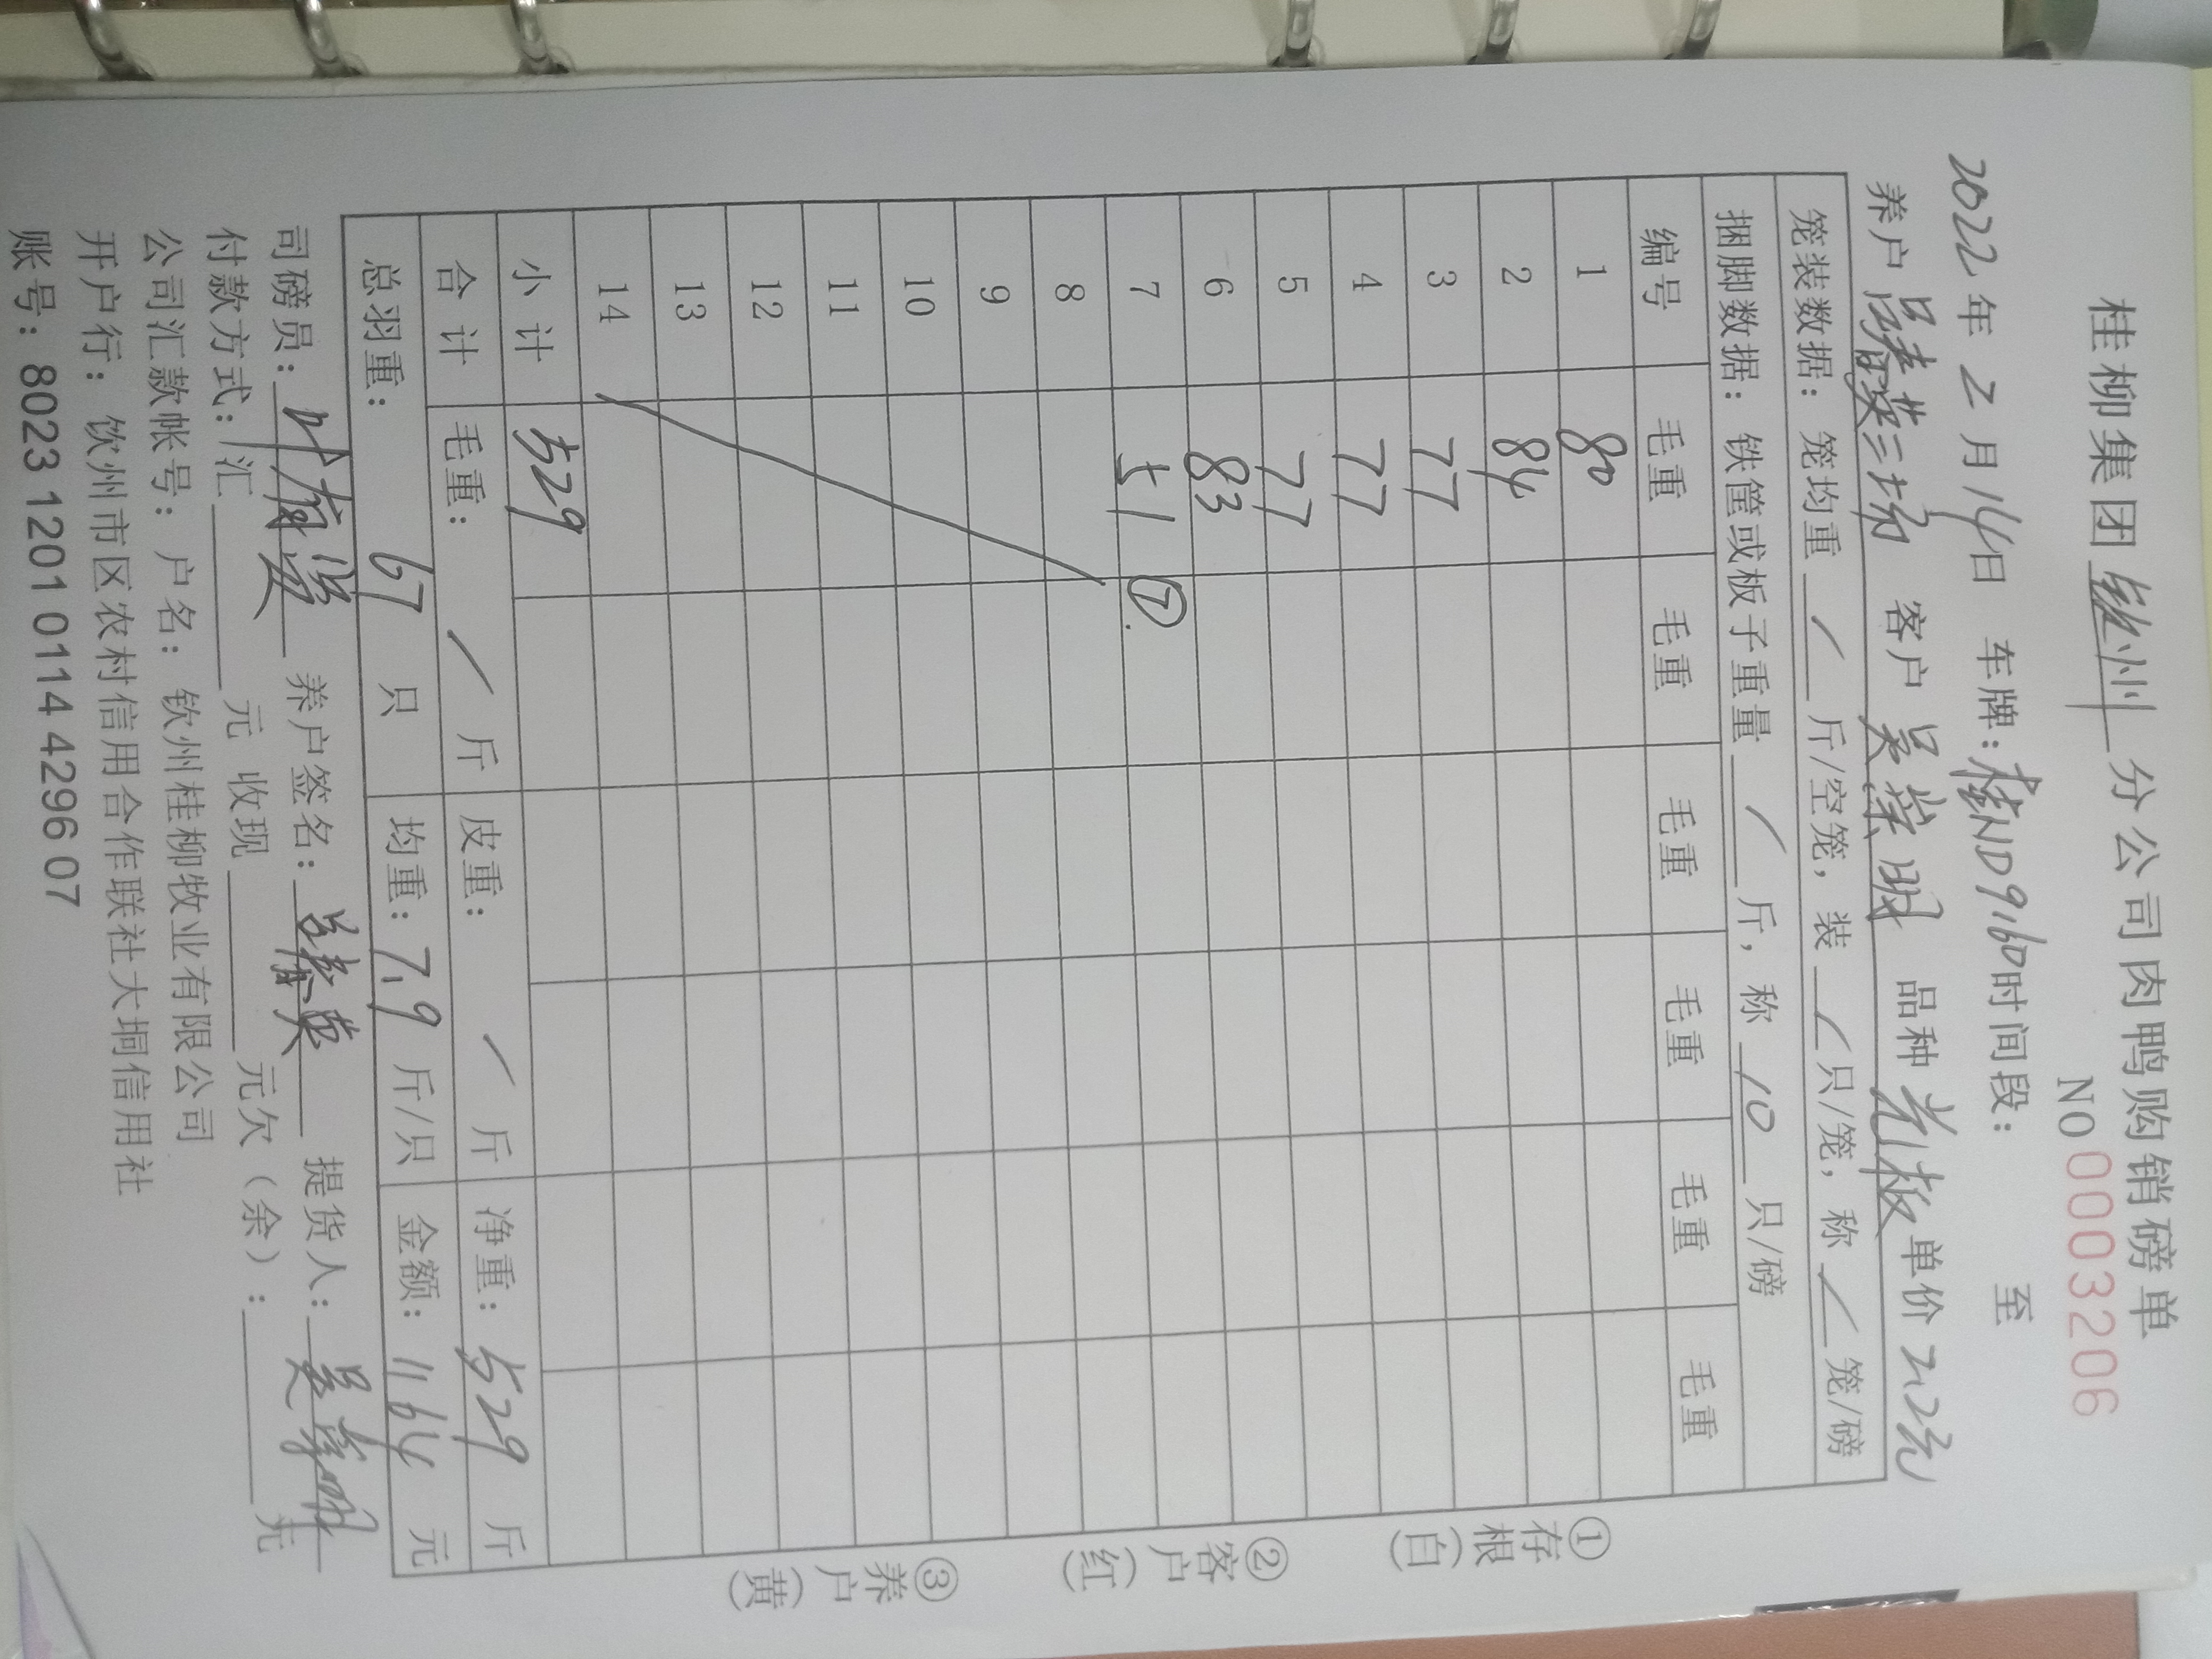 桂柳集团钦州分公司肉鸭购销磅单
NO 0003206
2022年2月14日 车牌:桂ND9160时间段: 至
养户 客户 吴 明 品种 单价2.2元
笼装数据:笼均重 / 斤/空笼,装 / 只/笼,称 / 笼/磅
捆脚数据:铁筐或板子重量 / 斤,称 10 只/磅
编号 毛重 毛重 毛重 毛重 毛重 毛重
1 80
2 84
3 77
4 77
5 77
6 83
7 51 ⑦.
8
9
10
11
12
13
14
小计 529
合计 毛重: / 斤 皮重: / 斤 净重:529 斤
总羽重: 67 只 均重:7.9 斤/只 金额:1164 元
司磅员:叶 养户签名: 提货人:吴 明
付款方式:汇 元 收现 元欠(余): 元
公司汇款帐号:户名:钦州桂柳牧业有限公司
开户行:饮州市区农村信用合作联社大垌信用社
账号:8023 1201 0114 4296 07
①存根(白) ②客户(红) ③养户(黄)